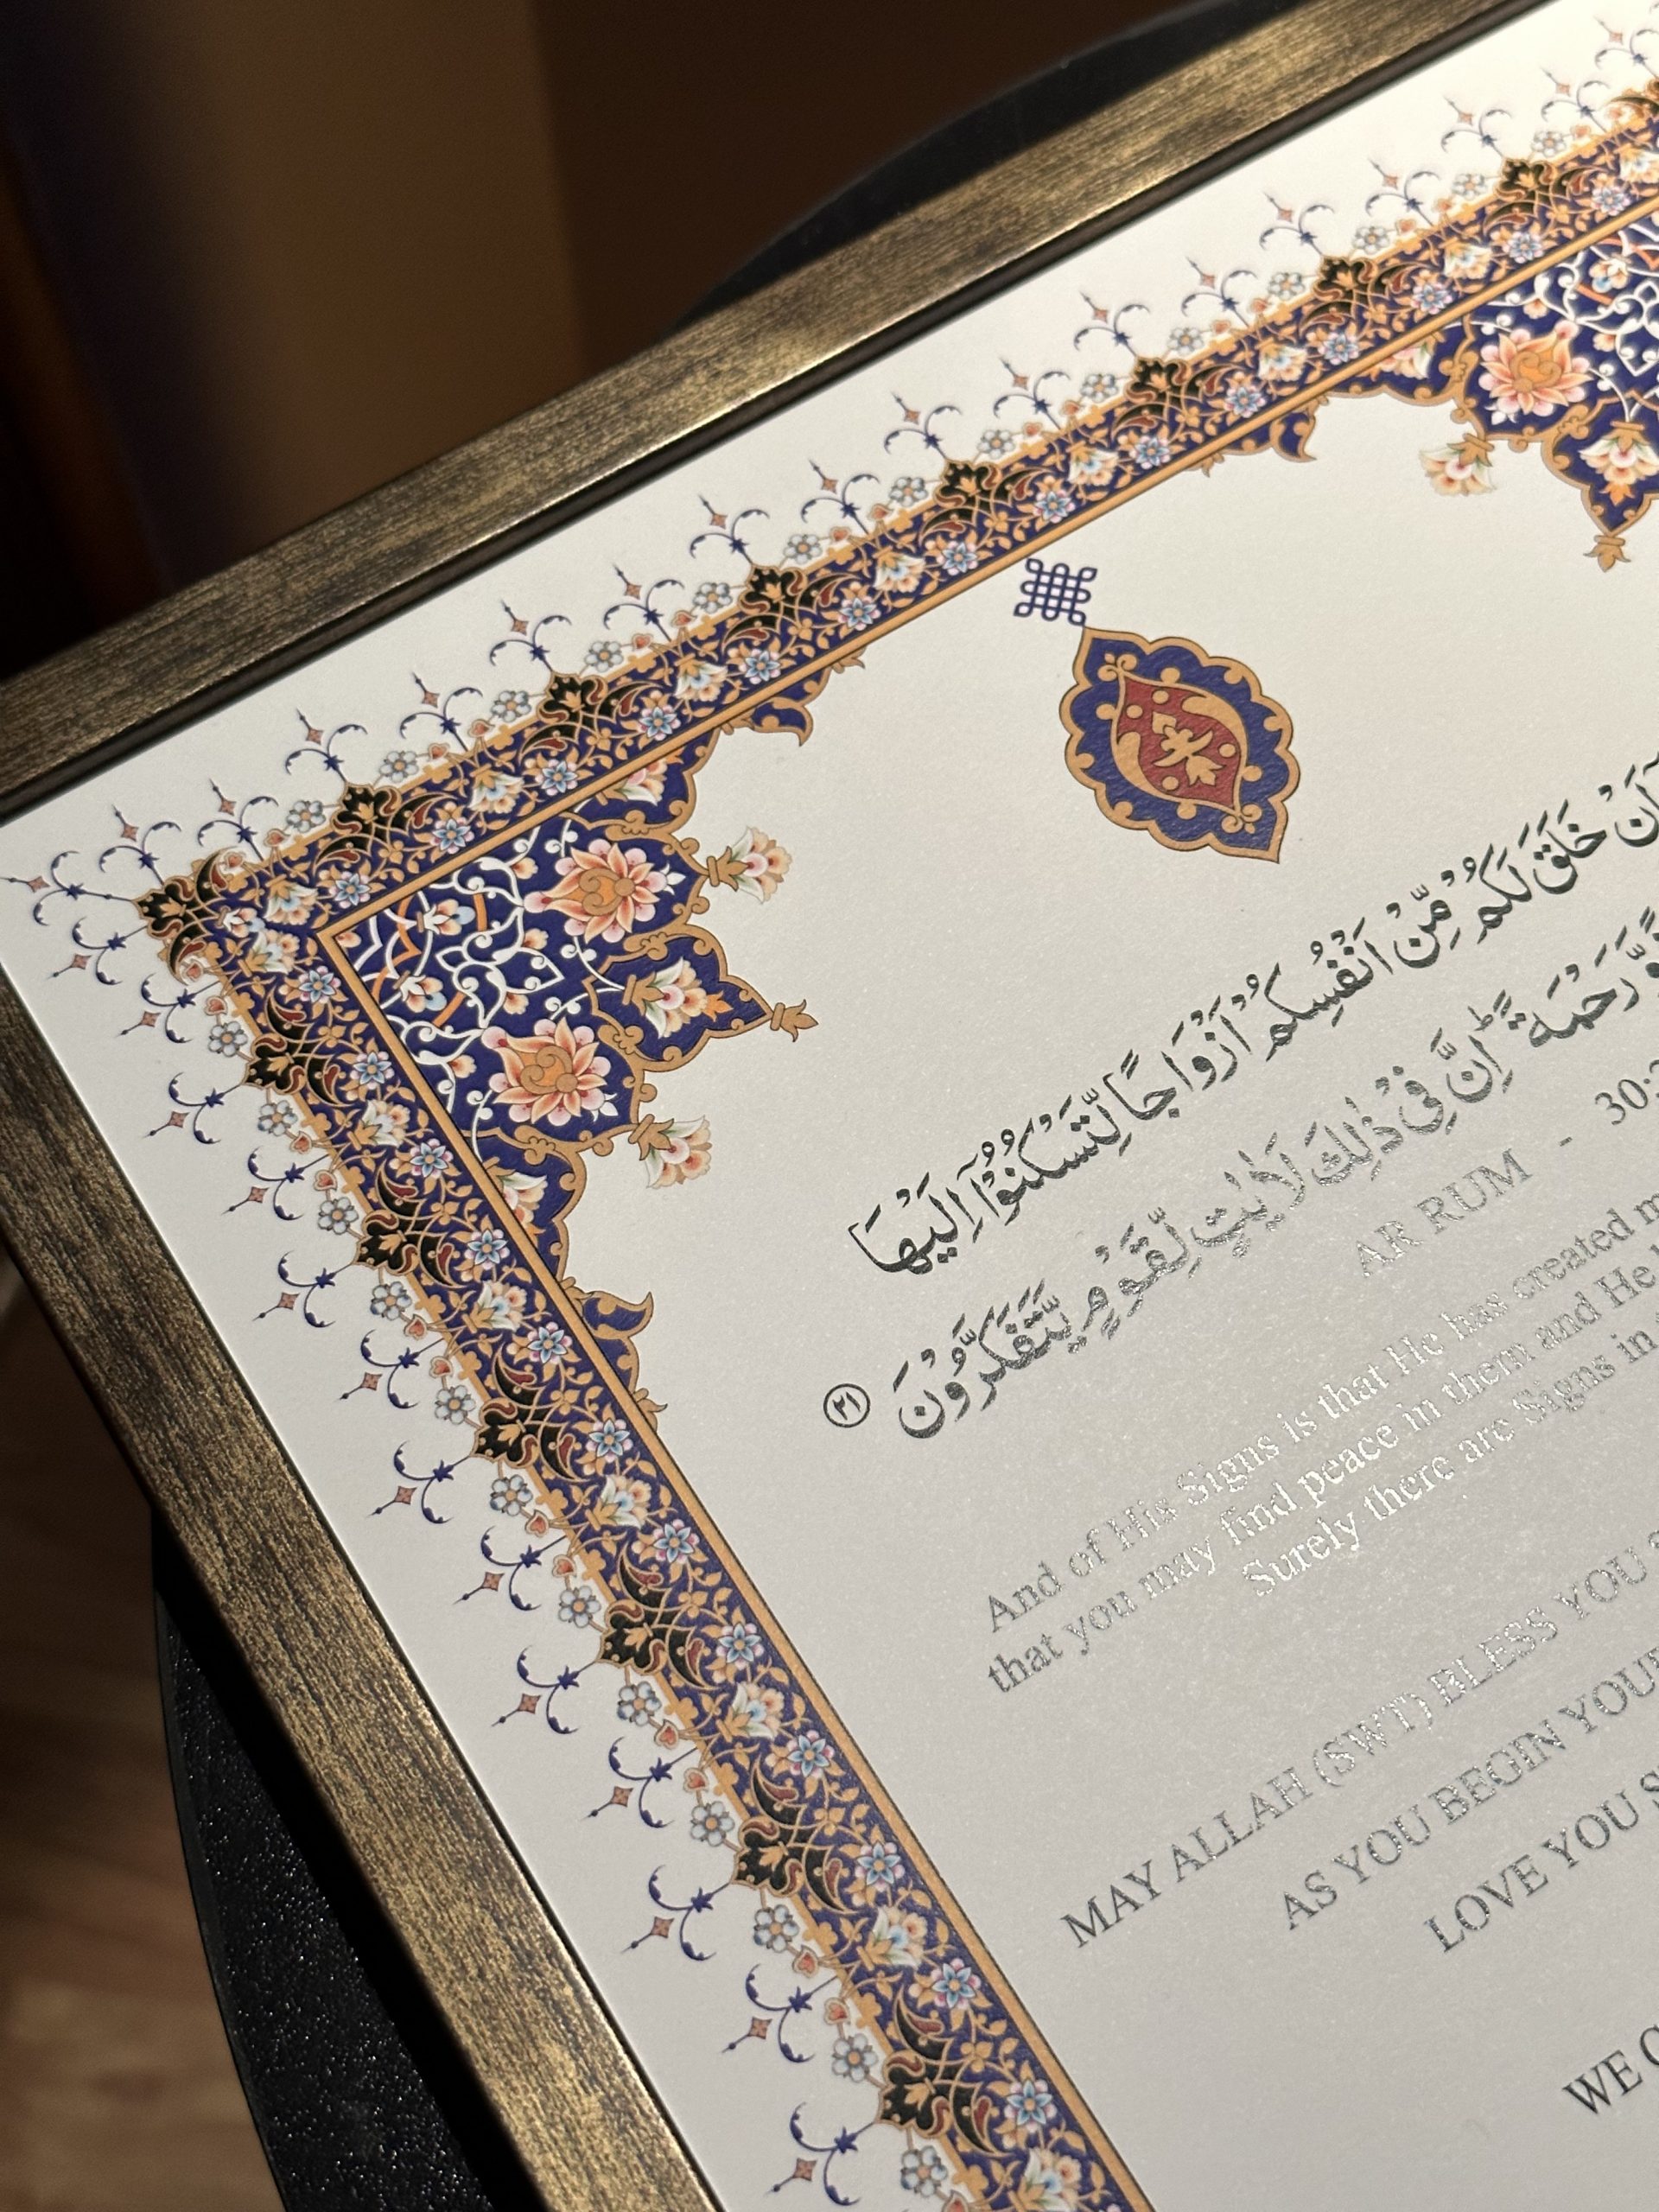 اَنْ خَلَقَ لَكُمْ مِّنْ اَنْفُسِكُمْ اَزْوَاجًا لِّتَسْكُنُوْۤا اِلَيْهَا
وَّ رَحْمَةً ؕ اِنَّ فِیْ ذٰلِكَ لَاٰیٰتٍ لِّقَوْمٍ یَّتَفَكَّرُوْنَ ۝۲۱
AR RUM - 30:
And of His Signs is that He has created
that you may find peace in them and He
Surely there are Signs in
MAY ALLAH (SWT) BLESS YOU
AS YOU BEGIN YOUR
LOVE YOU
WE